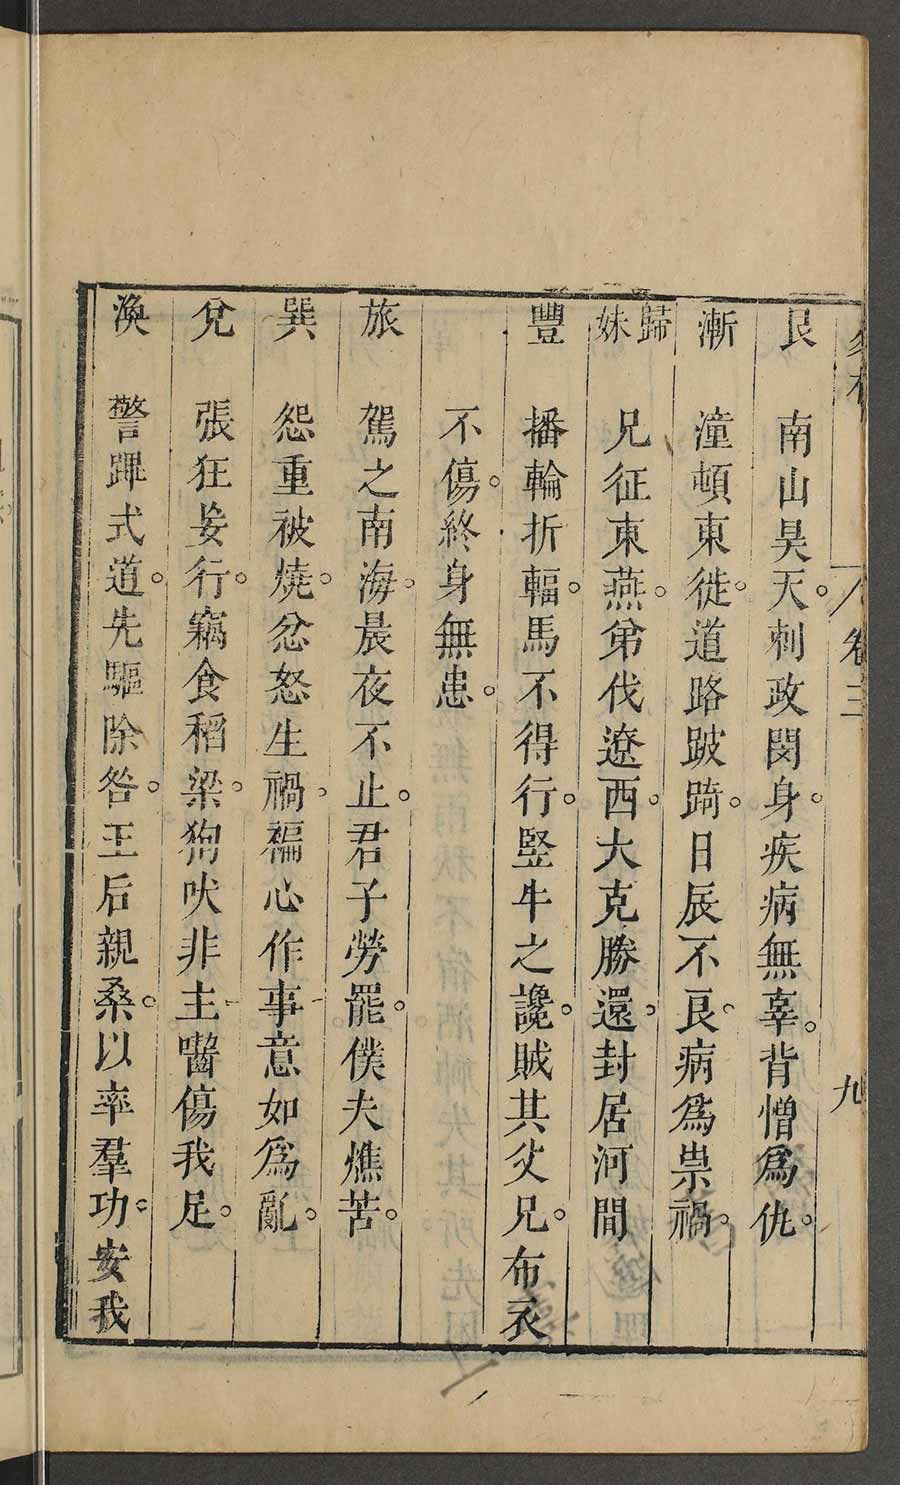 卷三 九
艮 南山昊天。刺政閔身。疾病無辜。背憎爲仇。
漸 潼頓東徙。道路跛踦。日辰不良。病爲祟禍。
歸妹 兄征東燕。弟伐遼西。大克勝還。封居河間
豐 播輪折輻。馬不得行。竪牛之讒。賊其父兄。布衣
不傷。終身無患。
旅 駕之南海。晨夜不止。君子勞罷。僕夫憔苦。
巽 怨重被燒。忿怒生禍。褊心作事。意如爲亂。
兌 張狂妄行。竊食稻粱。狗吠非主。嚙傷我足。
渙 警蹕式道。先驅除咎。王后親桑。以率羣功。安我